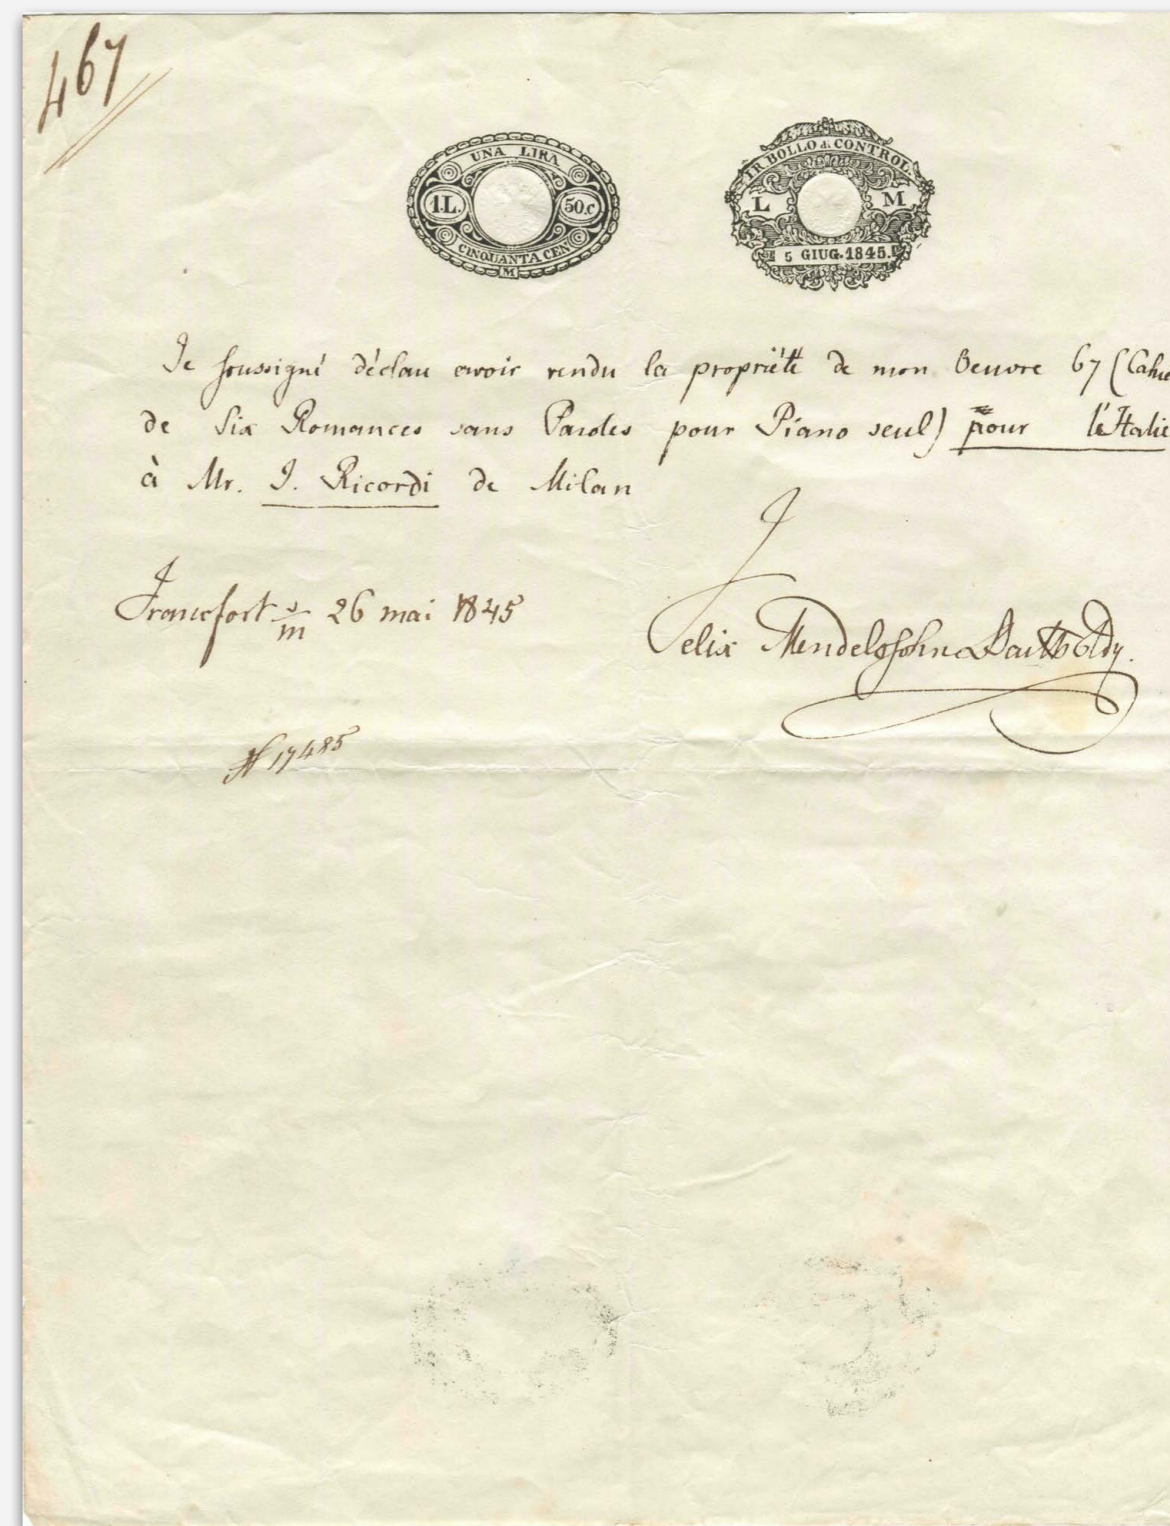 467
UNA LIRA
1.L. 50.c
CINQUANTA CEN
M
IR BOLLO di CONTROL.
L M
5 GIUG. 1845.
Je soussigné déclare avoir vendu la propriété de mon Oeuvre 67 (Cahie
de Six Romances sans Paroles pour Piano seul) pour l'Italie
à Mr. J. Ricordi de Milan
Francfort s/m 26 mai 1845
Felix Mendelssohn Bartholdy.
N 17485